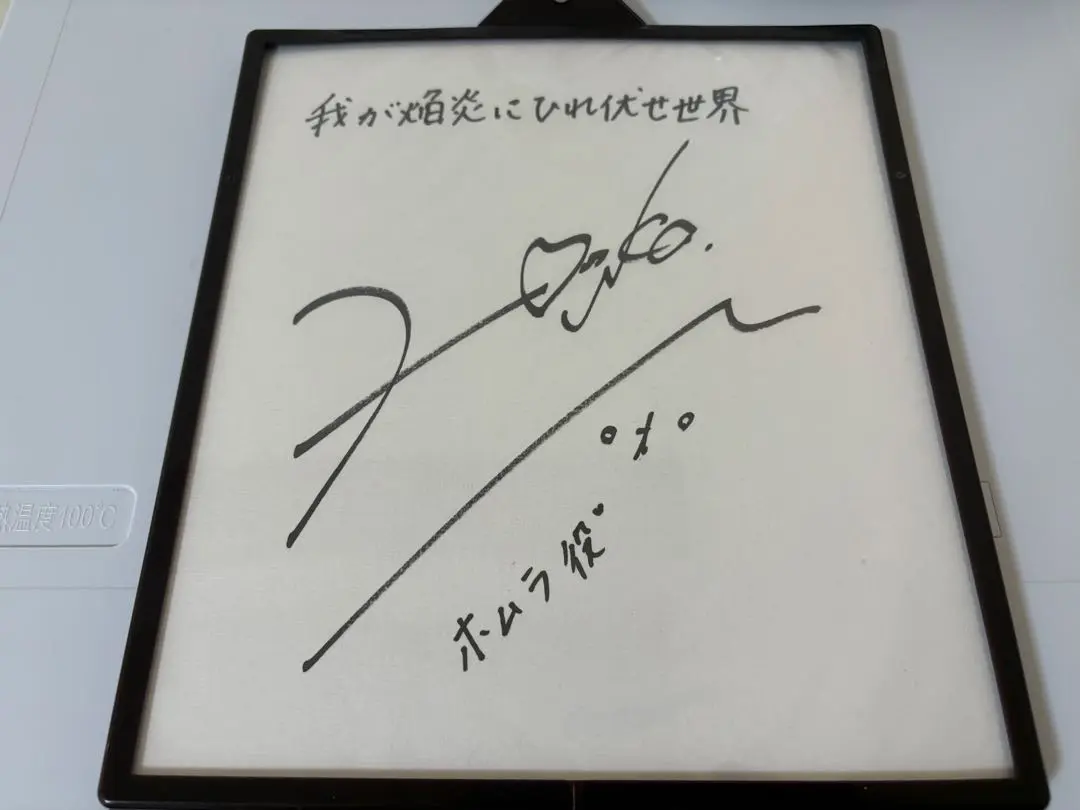 我が焔炎にひれ伏せ世界
ホムラ役
熱温度100℃